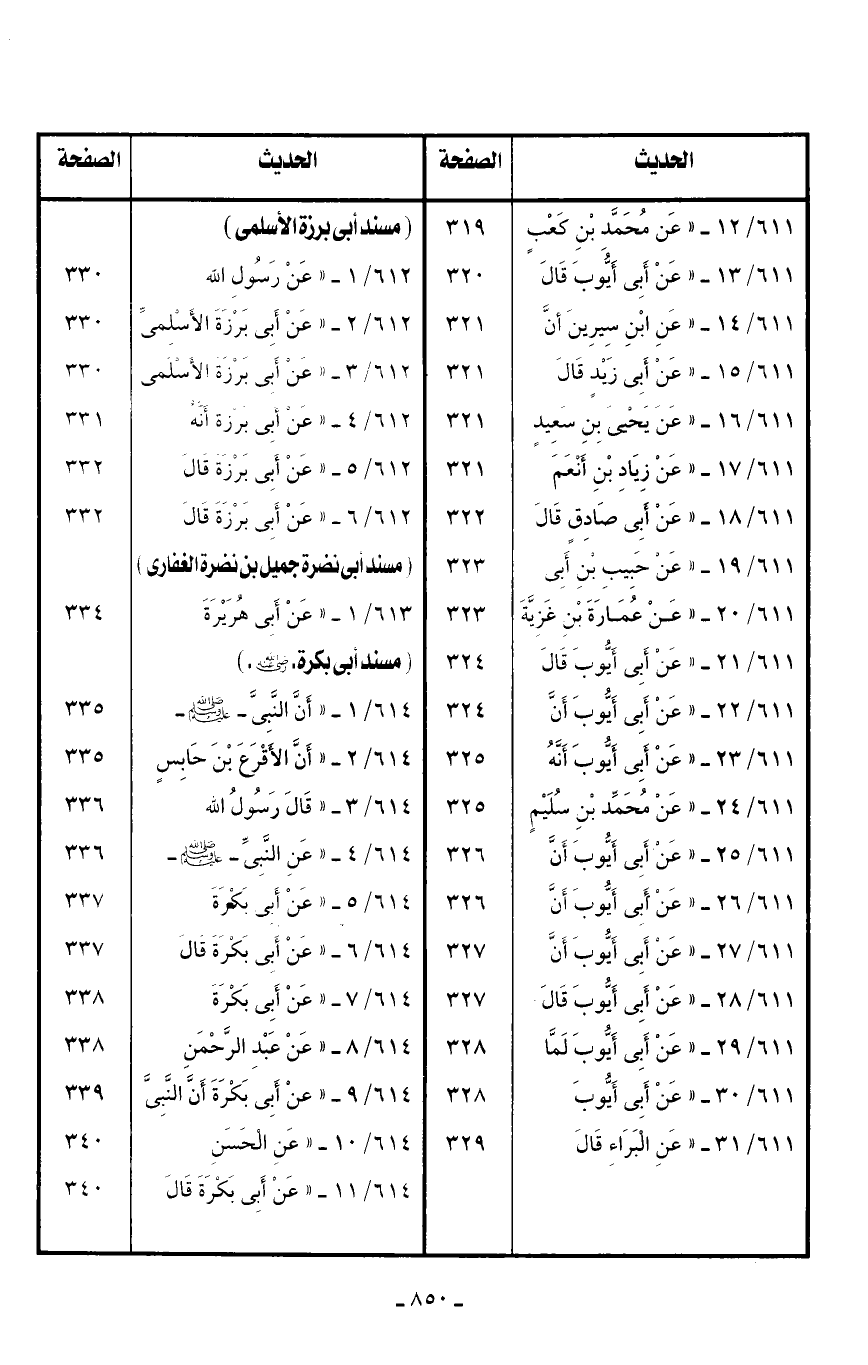 الحديث الصفحة
٦١١/ ١٢ ـ « عَن مُحَمَّدِ بْنِ كَعْبٍ ٣١٩
٦١١/ ١٣ ـ « عَنْ أَبِى أَيُّوبَ قَالَ ٣٢٠
٦١١/ ١٤ ـ « عَنِ ابْنِ سِيرِينَ أنَّ ٣٢١
٦١١/ ١٥ ـ « عَنْ أَبِى زَيْدٍ قَالَ ٣٢١
٦١١/ ١٦ ـ « عَنَ يَحْيىَ بنِ سَعِيدٍ ٣٢١
٦١١/ ١٧ ـ « عَنْ زِيَادِ بْنِ أَنْعَمَ ٣٢١
٦١١/ ١٨ ـ « عَنْ أَبِى صَادِقٍ قَالَ ٣٢٢
٦١١/ ١٩ ـ « عَنْ حَبِيبِ بْنِ أَبِى ٣٢٣
٦١١/ ٢٠ ـ « عَـنْ عُمَـارَةَ بْنِ غَزِيَّةَ ٣٢٣
٦١١/ ٢١ ـ « عَنْ أَبِى أَيُّوبَ قَالَ ٣٢٤
٦١١/ ٢٢ ـ « عَنْ أَبِى أَيُّوبَ أَنَّ ٣٢٤
٦١١/ ٢٣ ـ « عَنْ أَبِى أَيُّوبَ أَنَّهُ ٣٢٥
٦١١/ ٢٤ ـ « عَنْ مُحَمَّدِ بْنِ سُلَيْمٍ ٣٢٥
٦١١/ ٢٥ ـ « عَنْ أَبِى أَيُّوبَ أَنَّ ٣٢٦
٦١١/ ٢٦ ـ « عَنْ أَبِى أَيُّوبَ أَنَّ ٣٢٦
٦١١/ ٢٧ ـ « عَنْ أَبِى أَيُّوبَ أَنَّ ٣٢٧
٦١١/ ٢٨ ـ « عَنْ أَبِى أَيُّوبَ قَالَ ٣٢٧
٦١١/ ٢٩ ـ « عَنْ أَبِى أَيُّوبَ لَمَّا ٣٢٨
٦١١/ ٣٠ ـ « عَنْ أَبِى أَيُّوبَ ٣٢٨
٦١١/ ٣١ ـ « عَنِ الْبَرَاءِ قَالَ ٣٢٩
الحديث الصفحة
( مسند أبى برزة الأسلمى )
٦١٢/ ١ ـ « عَنْ رَسُولِ الله ٣٣٠
٦١٢/ ٢ ـ « عَنْ أَبِى بَرْزَةَ الأَسْلَمِىِّ ٣٣٠
٦١٢/ ٣ ـ « عَنْ أَبِى بَرْزَةَ الأَسْلَمى ٣٣٠
٦١٢/ ٤ ـ « عَنْ أَبى بَرْزة أَنَّهُ ٣٣١
٦١٢/ ٥ ـ « عَنْ أَبِى بَرْزَةَ قَالَ ٣٣٢
٦١٢/ ٦ ـ « عَنْ أَبِى بَرْزَةَ قَالَ ٣٣٢
( مسند أبى نضرة جميل بن نضرة الغفارى )
٦١٣/ ١ ـ « عَنْ أَبِى هُرَيْرَةَ ٣٣٤
( مسند أبى بكرة، رضي الله عنه ، )
٦١٤/ ١ ـ « أَنَّ النَّبِىَّ ـ ﷺ ـ ٣٣٥
٦١٤/ ٢ ـ « أَنَّ الأَقْرَعَ بْنَ حَابِسٍ ٣٣٥
٦١٤/ ٣ ـ « قَالَ رَسُولُ الله ٣٣٦
٦١٤/ ٤ ـ « عَنِ النَّبِىِّ ـ ﷺ ـ ٣٣٦
٦١٤/ ٥ ـ « عَنْ أَبِى بَكْرَةَ ٣٣٧
٦١٤/ ٦ ـ « عَنْ أَبِى بَكْرَةَ قَالَ ٣٣٧
٦١٤/ ٧ ـ « عَنْ أَبِى بَكْرَةَ ٣٣٨
٦١٤/ ٨ ـ « عَنْ عَبْدِ الرَّحْمَنِ ٣٣٨
٦١٤/ ٩ ـ « عنْ أَبِى بَكْرَةَ أَنَّ النَّبِىَّ ٣٣٩
٦١٤/ ١٠ ـ « عَنِ الْحَسَنِ ٣٤٠
٦١٤/ ١١ ـ « عَنْ أَبِى بَكْرَةَ قَالَ ٣٤٠
ـ ٨٥٠ ـ